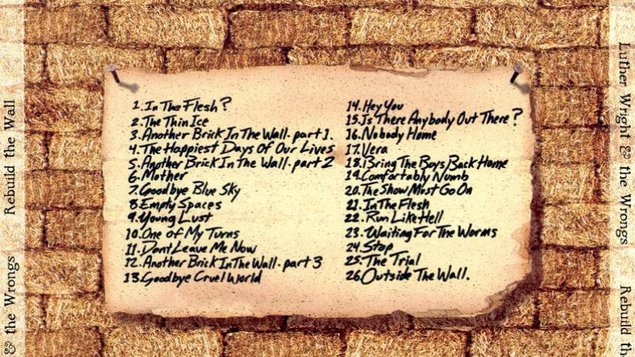 Rebuild the Wall
& the Wrongs
1. In The Flesh?
2. The Thin Ice
3. Another Brick In The Wall. part 1.
4. The Happiest Days Of Our Lives
5. Another Brick In The Wall. part 2
6. Mother
7. Goodbye Blue Sky
8. Empty Spaces
9. Young Lust
10. One of My Turns
11. Dont Leave Me Now
12. Another Brick In The Wall. part 3
13. Goodbye Cruel World
14. Hey You
15. Is There Anybody Out There?
16. Nobody Home
17. Vera
18. Bring The Boys Back Home
19. Comfortably Numb
20. The Show Most Go On
21. In The Flesh
22. Run Like Hell
23. Waiting For The Worms
24. Stop
25. The Trial
26. Outside The Wall.
Luther Wright & the Wrongs
Rebuild th